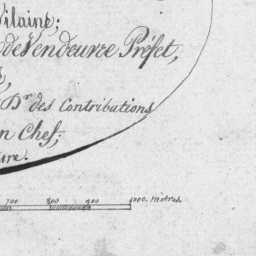 Vilaine;
de Vendeuvre Préfet,
Dr. des Contributions
n Chef;
ure.
700 800 900 1000 Mètres